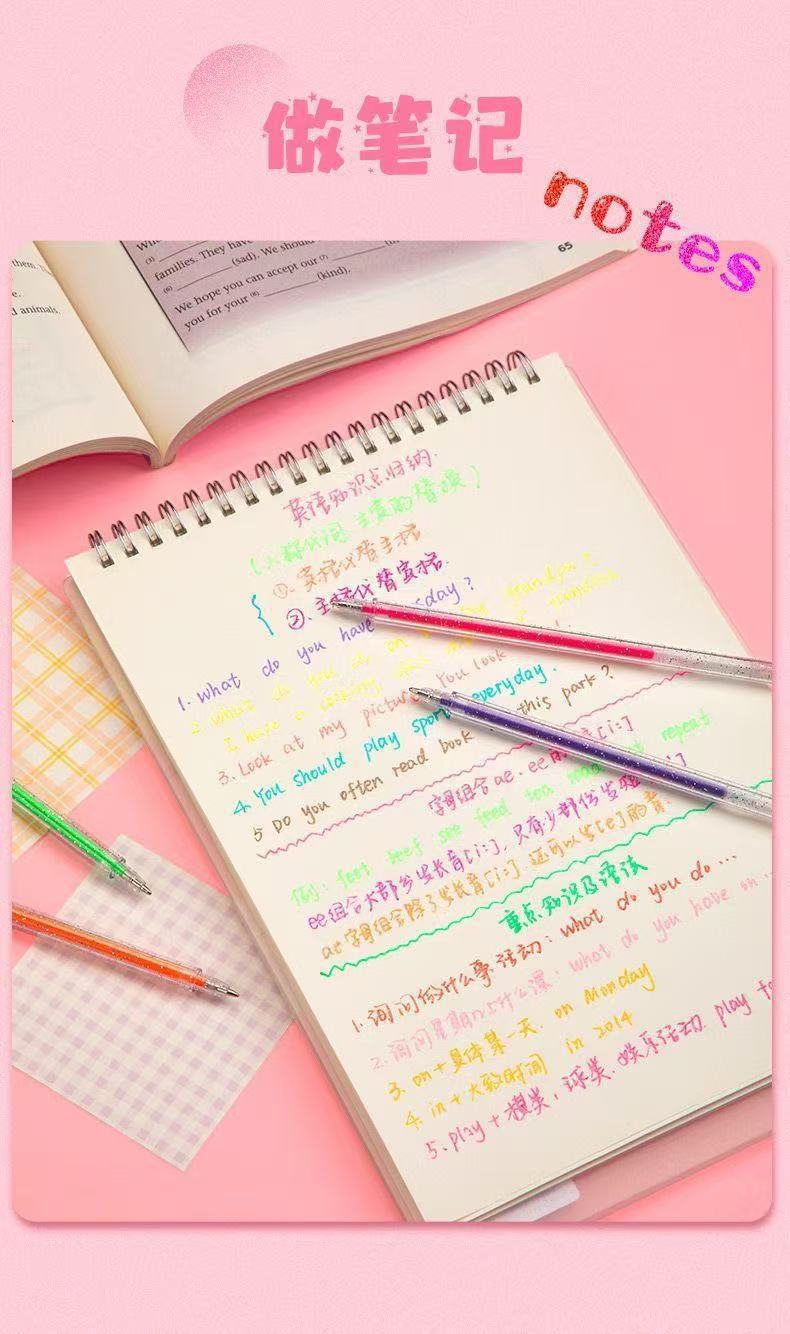 做笔记
notes
families. They have
(5) (sad). We should
(6)
We hope you can accept our (7) (
you for your (8) (kind).
65
them.
animals.
英语知识点归纳.
(人称代词 主宾的替换)
①. 宾格代替主格
②. 主格代替宾格.
1. what do you have day?
2. what do you do on grandpa?
I have a
3. Look at my picture You look
4. You should play sport everyday.
5 Do you often read book this park?
字母组合ae. ee [i:]
例: feet beef see feed tea repeat
ee组合大部分发长音[i:], 只有少部份发短[i]
ae字母组合除了发长音[i:], 还可以发[e]的音.
重点知识及语法
1. 询问你什么事活动: what do you do ...
2. 询问星期几上什么课: what do you have on ...
3. on+具体某一天. on Monday
4. in+大致时间 in 2014
5. play+棋类, 球类. 娱乐活动. play